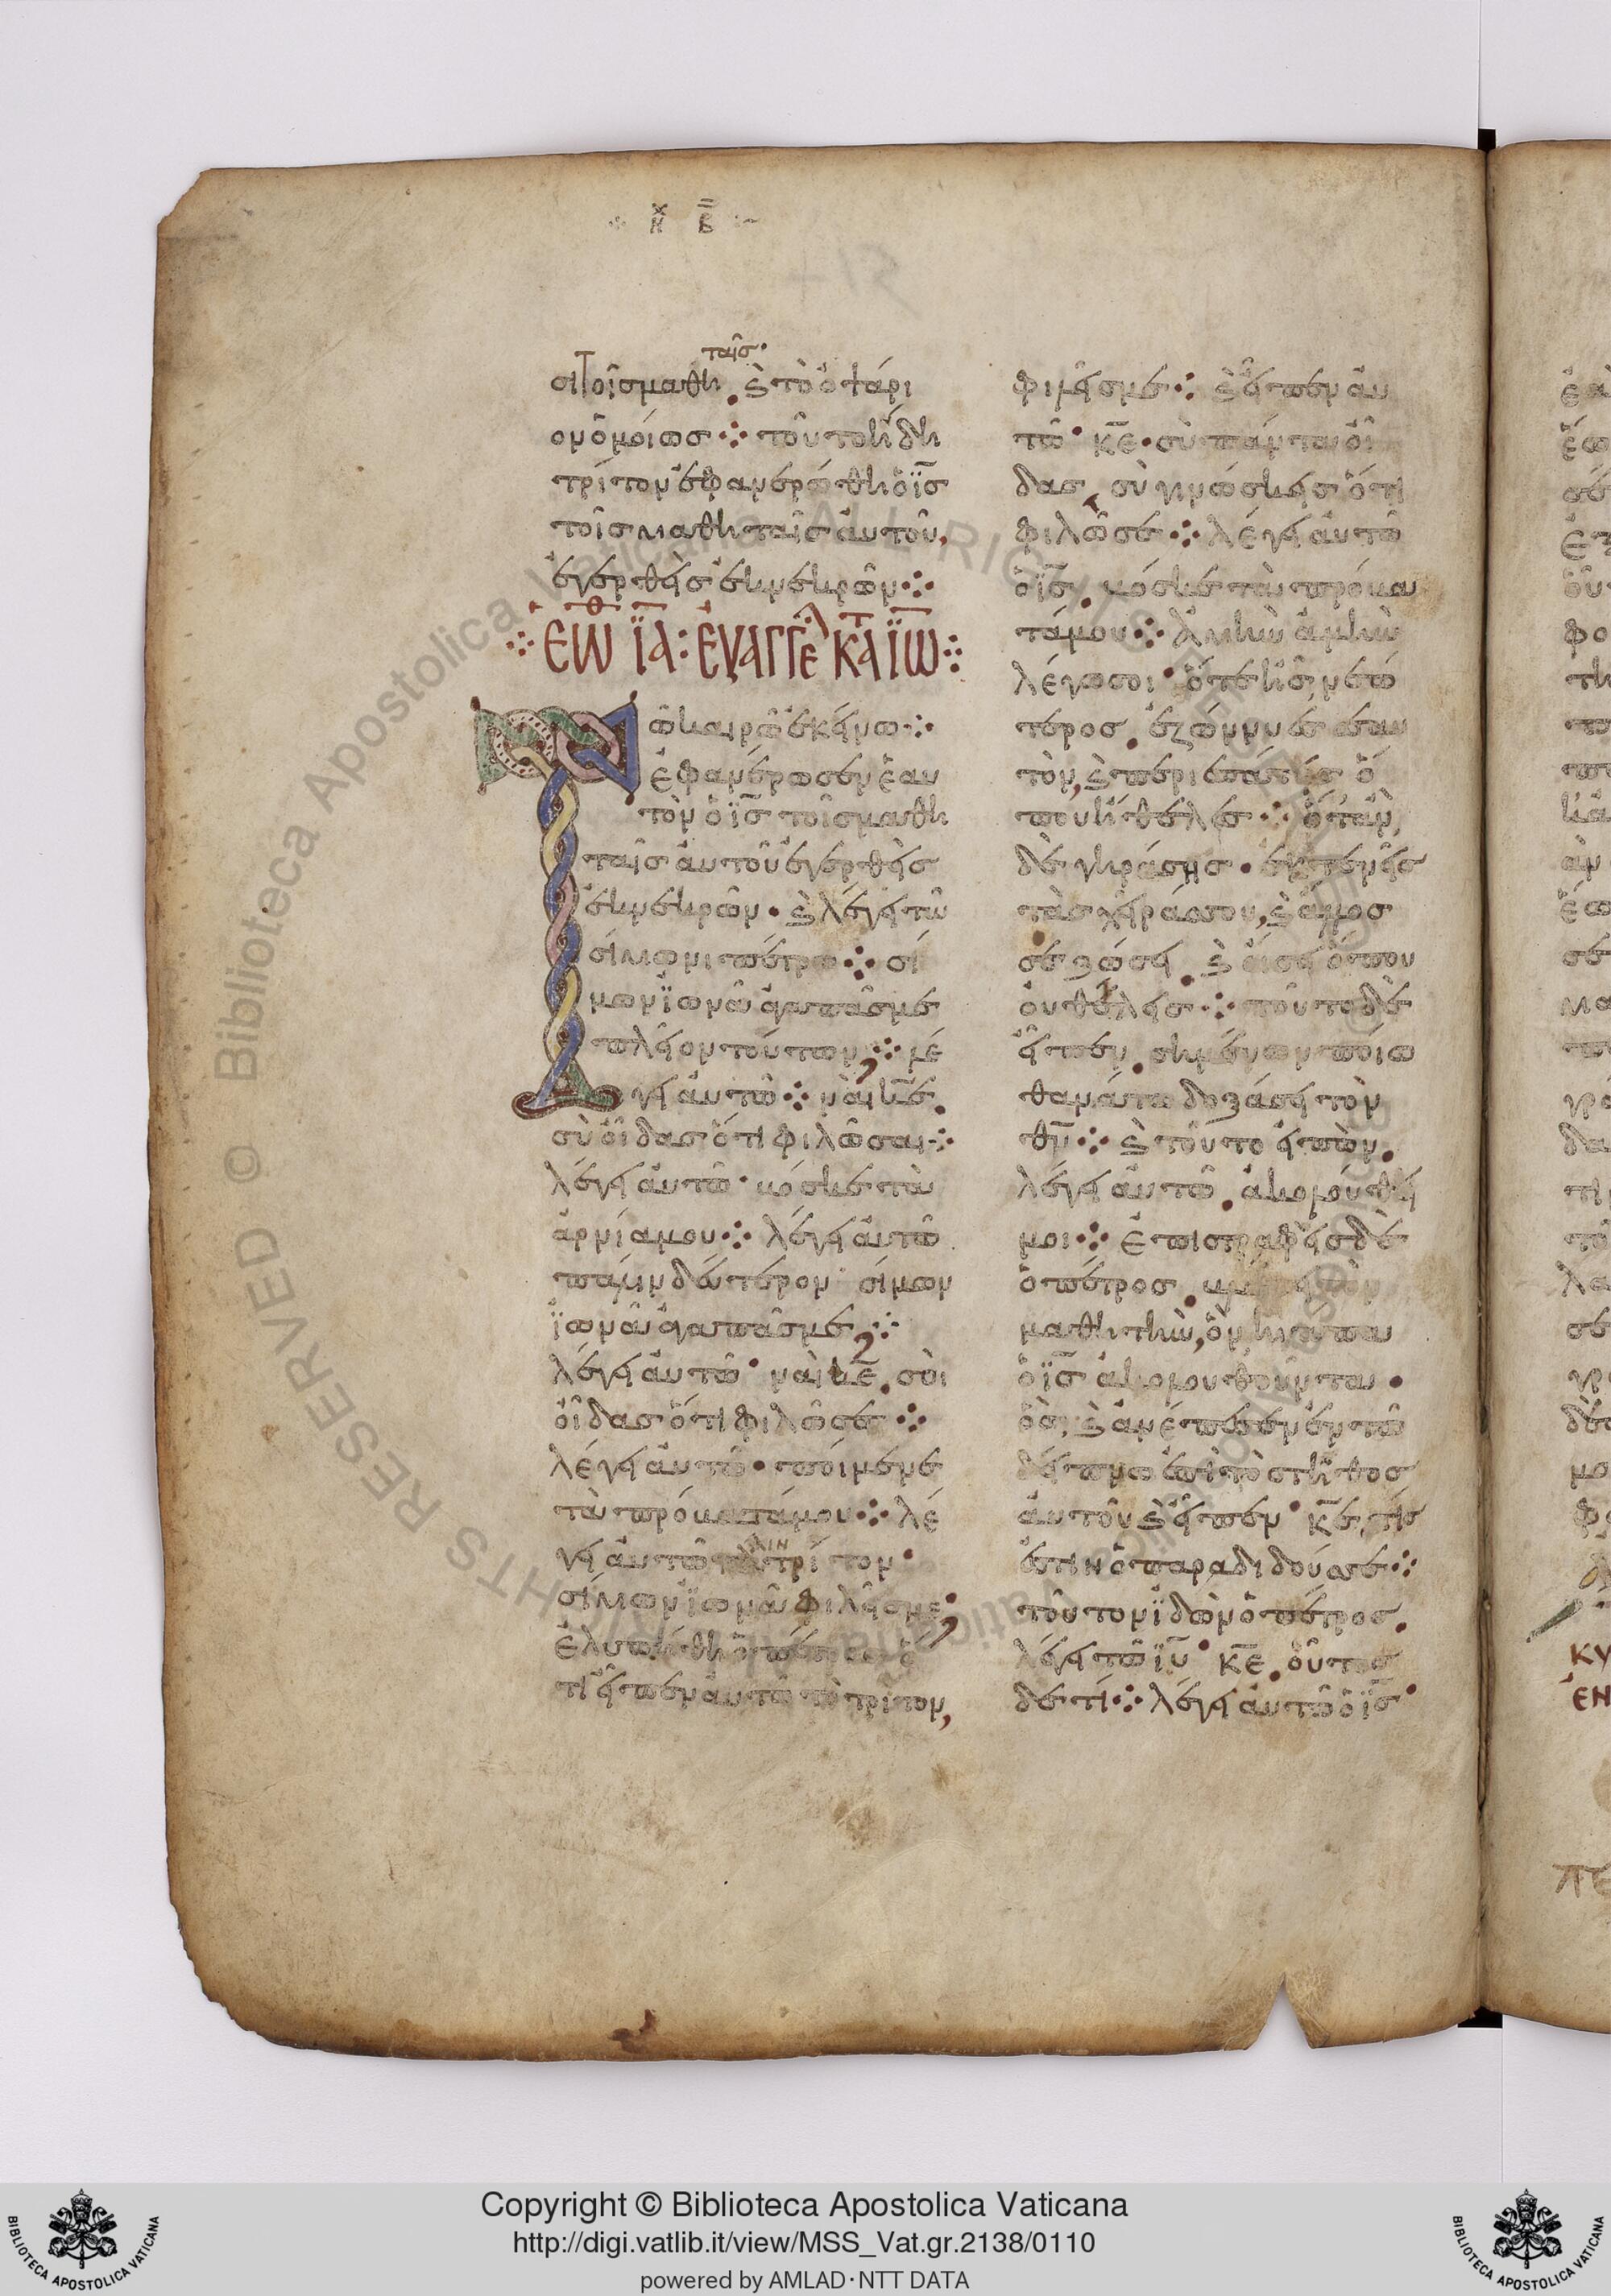 σι τοῖς μαθη
ταῖς·
ϗ τὸ ὀψάρι
ον ὁμοίως ⁘ τοῦτο ἤδη
τρίτον ἐφανερώθη ὁ ϊ̅ς̅
τοῖς μαθηταῖς ἀυτοῦ,
ἐγερθεὶς ἐκ νεκρῶν ⁘
⁘ ΕΩΘ ΪΑ : ΕΥΑΓΓΕΛ ΚΑΤ ΪΩ ⁘
Τῶ καιρῶ ἐκείνω ⁘
ἐφανέρωσεν ἑαυ
τὸν ὁ ϊ̅ς̅ τοῖς μαθη
ταῖς ἀυτοῦ ἐγερθεὶς
ἐκ νεκρῶν · ϗ λέγει τῶ
σίμωνι πέτρω ⁘ σί
μων ϊωνᾶ ἀγαπᾶς με
πλεῖον τούτων ⁘ λέ
γει ἀυτῶ ⁘ ναὶ κ̅ε̅.
σὺ οἶδας ὅτι φιλῶ σαι ⁘
λέγει ἀυτῶ · βόσκε τὰ
ἀρνία μου ⁘ λέγει ἀυτῶ
πάλιν δέυτερον σίμων
ϊωνᾶ ἀγαπᾶς με ⁘
λέγει ἀυτῶ · ναὶ κ̅ε̅. σὺ
οἶδας ὅτι φιλῶ σε ⁘
λέγει ἀυτῶ · ποίμενε
τὰ πρόβατά μου ⁘ λέ
γει ἀυτῶ τρίτον ·
σίμων ϊωνᾶ φιλεῖς με
ἐλυπήθη ὁ πέτρος ὅ
τι εἶπεν ἀυτῶ τὸ τρίτον,
φιλεῖς με ⁘ ϗ εἶπεν ἀυ
τῶ · κ̅ε̅ · σὺ πάντα οἶ
δας, σὺ γινώσκεις ὅτι
φιλῶ σε ⁘ λέγει ἀυτῶ
ὁ ϊ̅ς̅. βόσκε τὰ πρόβα
τά μου ⁘ ἀμὴν ἀμὴν
λέγω σοι · ὅτε ἦς νεώ
τερος. ἐζώννυες σεαυ
τὸν, ϗ περιεπάτεις ὅ
που ἤθελες ⁘ ὅταν
δὲ γηράσης · ἐκτενεῖς
τὰς χεῖρας σου, ϗ ἄλλος
σε ζώσει. ϗ οἴσει ὅπου
ὀυ θέλεις ⁘ τοῦτο δὲ
εἶπεν. σημένων ποίω
θανάτω δοξάσει τὸν
θ̅ν̅ ⁘ ϗ τοῦτο εἰπὼν.
λέγει ἀυτῶ. ἀκολούθει
μοι ⁘ ἐπιστραφεὶς δὲ
ὁ πέτρος. βλέπει τὸν
μαθητὴν, ὃν ἠγάπα
ὁ ϊ̅ς̅ ἀκολουθοῦντα ·
ὃς ϗ ἀνέπεσεν ἐν τῶ
δείπνω ἐπὶ τὸ στῆθος
ἀυτοῦ ϗ εἶπεν · κ̅ε̅ τίς
ἐστιν ὁ παραδιδούς σε ⁘
τοῦτον ϊδὼν ὁ πέτρος.
λέγει τῶ ϊ̅υ̅ · κ̅ε̅. οὗτος
δὲ τί ⁘ λέγει ἀυτῶ ὁ ϊ̅ς̅ ·
Copyright © Biblioteca Apostolica Vaticana
http://digi.vatlib.it/view/MSS_Vat.gr.2138/0110
powered by AMLAD·NTT DATA